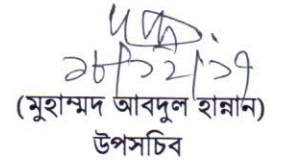 ১৮/১২/১৭
(মুহাম্মদ আবদুল হান্নান)
উপসচিব